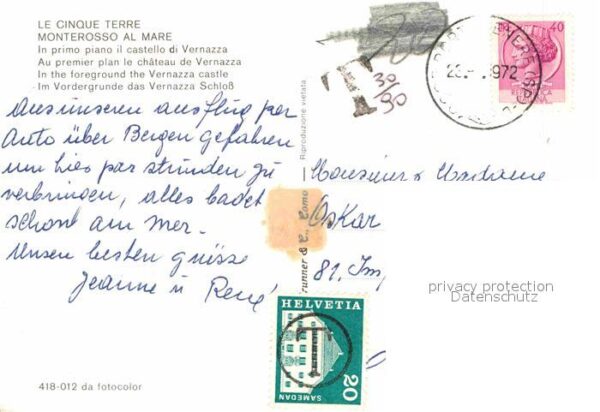 LE CINQUE TERRE
MONTEROSSO AL MARE
In primo piano il castello di Vernazza
Au premier plan le château de Vernazza
In the foreground the Vernazza castle
Im Vordergrunde das Vernazza Schloß
unseren ausflug per
Auto über Bergen gefahren
um hier par stunden zu
verbringen, alles badet
schont am mer.
Unsen besten grüsse
Jeanne u René
418-012 da fotocolor
Riproduzione vietata
runner & C., Como
T 30/90
1972
40
Monsieur & Madame
Oskar
81. Im
privacy protection
Datenschutz
HELVETIA
T
SAMEDAN
20